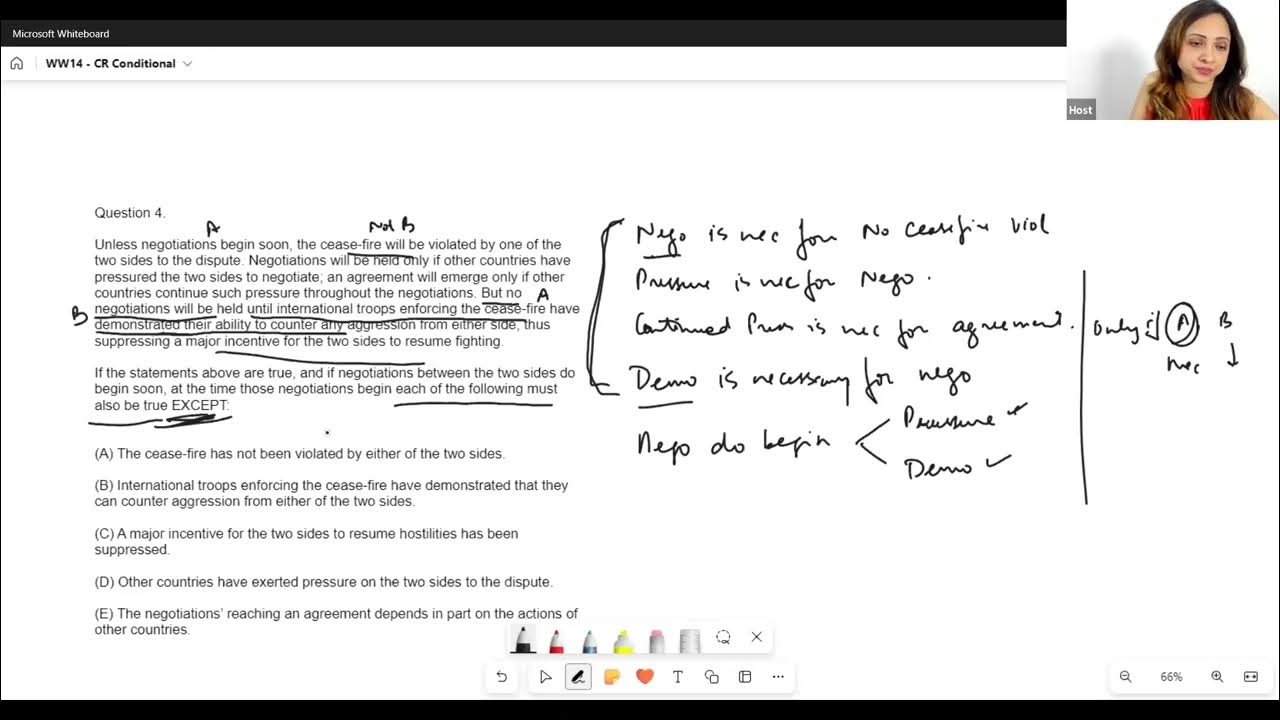 Microsoft Whiteboard
WW14 - CR Conditional
Host
Question 4.
A Not B
Unless negotiations begin soon, the cease-fire will be violated by one of the
two sides to the dispute. Negotiations will be held only if other countries have
pressured the two sides to negotiate; an agreement will emerge only if other
countries continue such pressure throughout the negotiations. But no
A
B
negotiations will be held until international troops enforcing the cease-fire have
demonstrated their ability to counter any aggression from either side, thus
suppressing a major incentive for the two sides to resume fighting.
If the statements above are true, and if negotiations between the two sides do
begin soon, at the time those negotiations begin each of the following must
also be true EXCEPT:
(A) The cease-fire has not been violated by either of the two sides.
(B) International troops enforcing the cease-fire have demonstrated that they
can counter aggression from either of the two sides.
(C) A major incentive for the two sides to resume hostilities has been
suppressed.
(D) Other countries have exerted pressure on the two sides to the dispute.
(E) The negotiations' reaching an agreement depends in part on the actions of
other countries.
Nego is nec for No ceasefire viol
Pressure is nec for Nego.
Continued Press is nec for agreement.
Demo is necessary for nego
Nego do begin
Pressure
Demo
only if A B
nec
66%